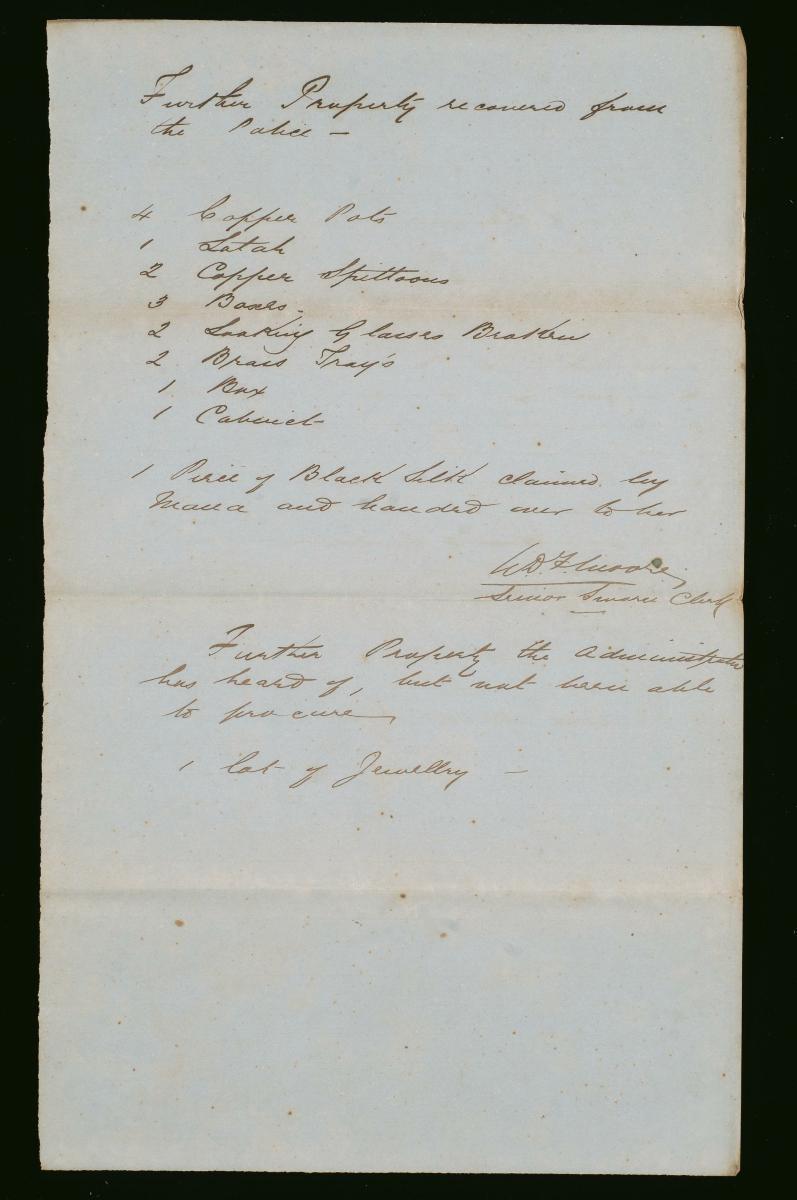 Further Property recovered from
the Police —
4 Copper Pots
1 Lotah
2 Copper Spittoons
3 Boxes.
2 Looking Glasses Broken
2 Brass Tray's
1 Box
1 Cabinet
1 Piece of Black Silk claimed by
and handed over to her
Moore
Senior Sworn Clerk
Further Property the Administrator
has heard of, but not been able
to procure
1 lot of Jewellry —